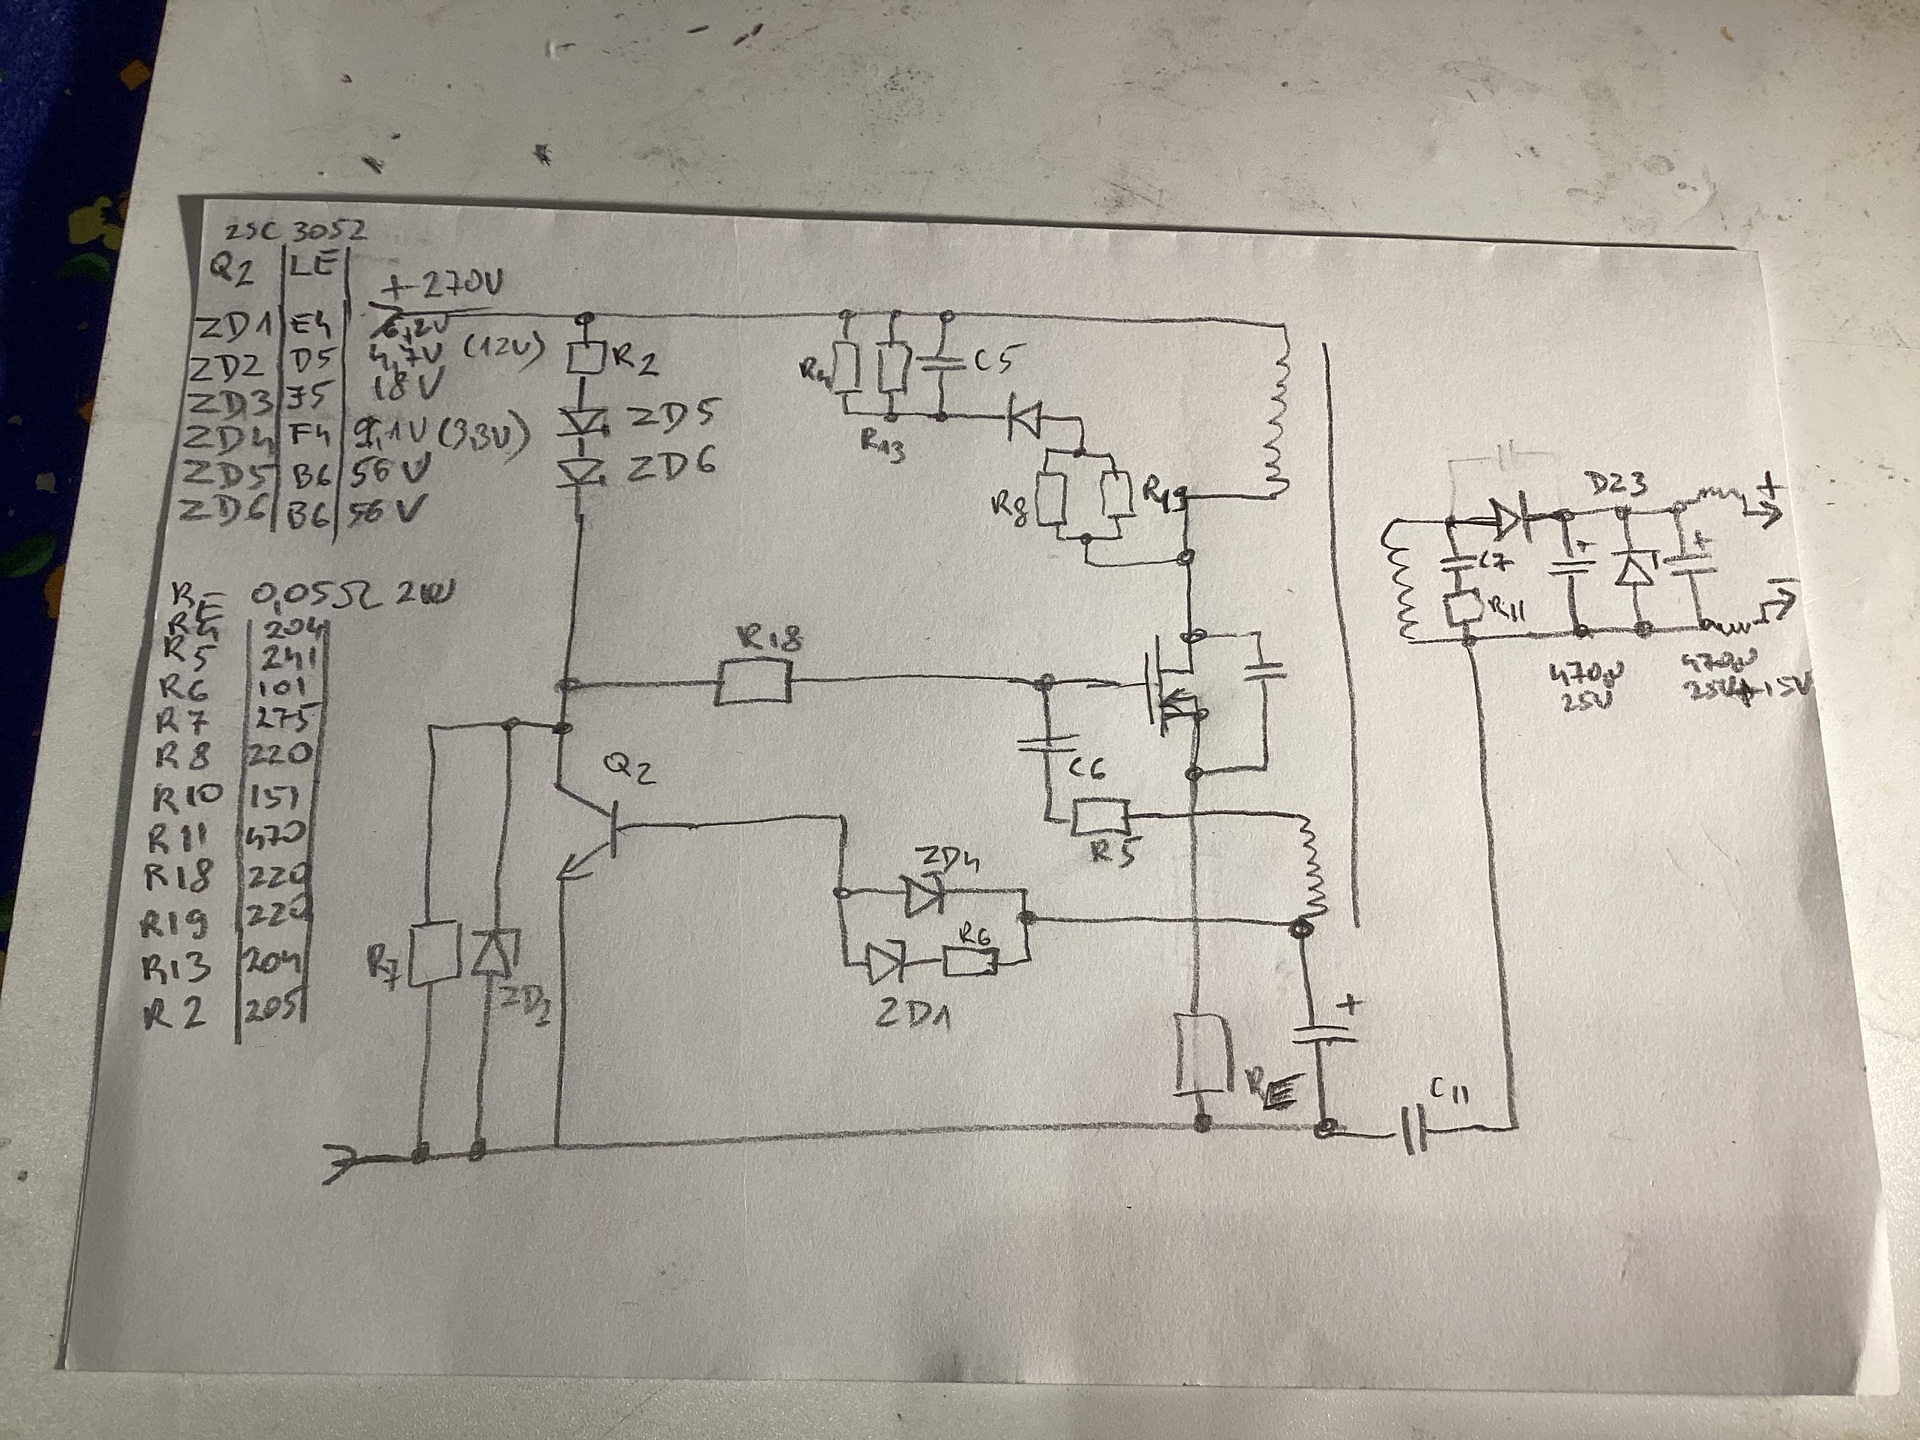 2SC 3052
Q2 LE
+270V
ZD1 E4 6,2V
ZD2 D5 4,7V (12V)
ZD3 F5 18V
ZD4 F4 9,1V (9,3V)
ZD5 B6 56V
ZD6 B6 56V
RE 0,05Ω 2W
R4 204
R5 241
R6 101
R7 275
R8 220
R10 151
R11 470
R18 220
R19 220
R13 204
R2 205
R2
ZD5
ZD6
R4
C5
R13
R8
R19
R18
C6
R5
Q2
ZD4
R6
ZD1
R7
ZD2
RE
+
C11
D23
+
C7
+
+
R11
-
470µ
25V
470µ
25V
+15V